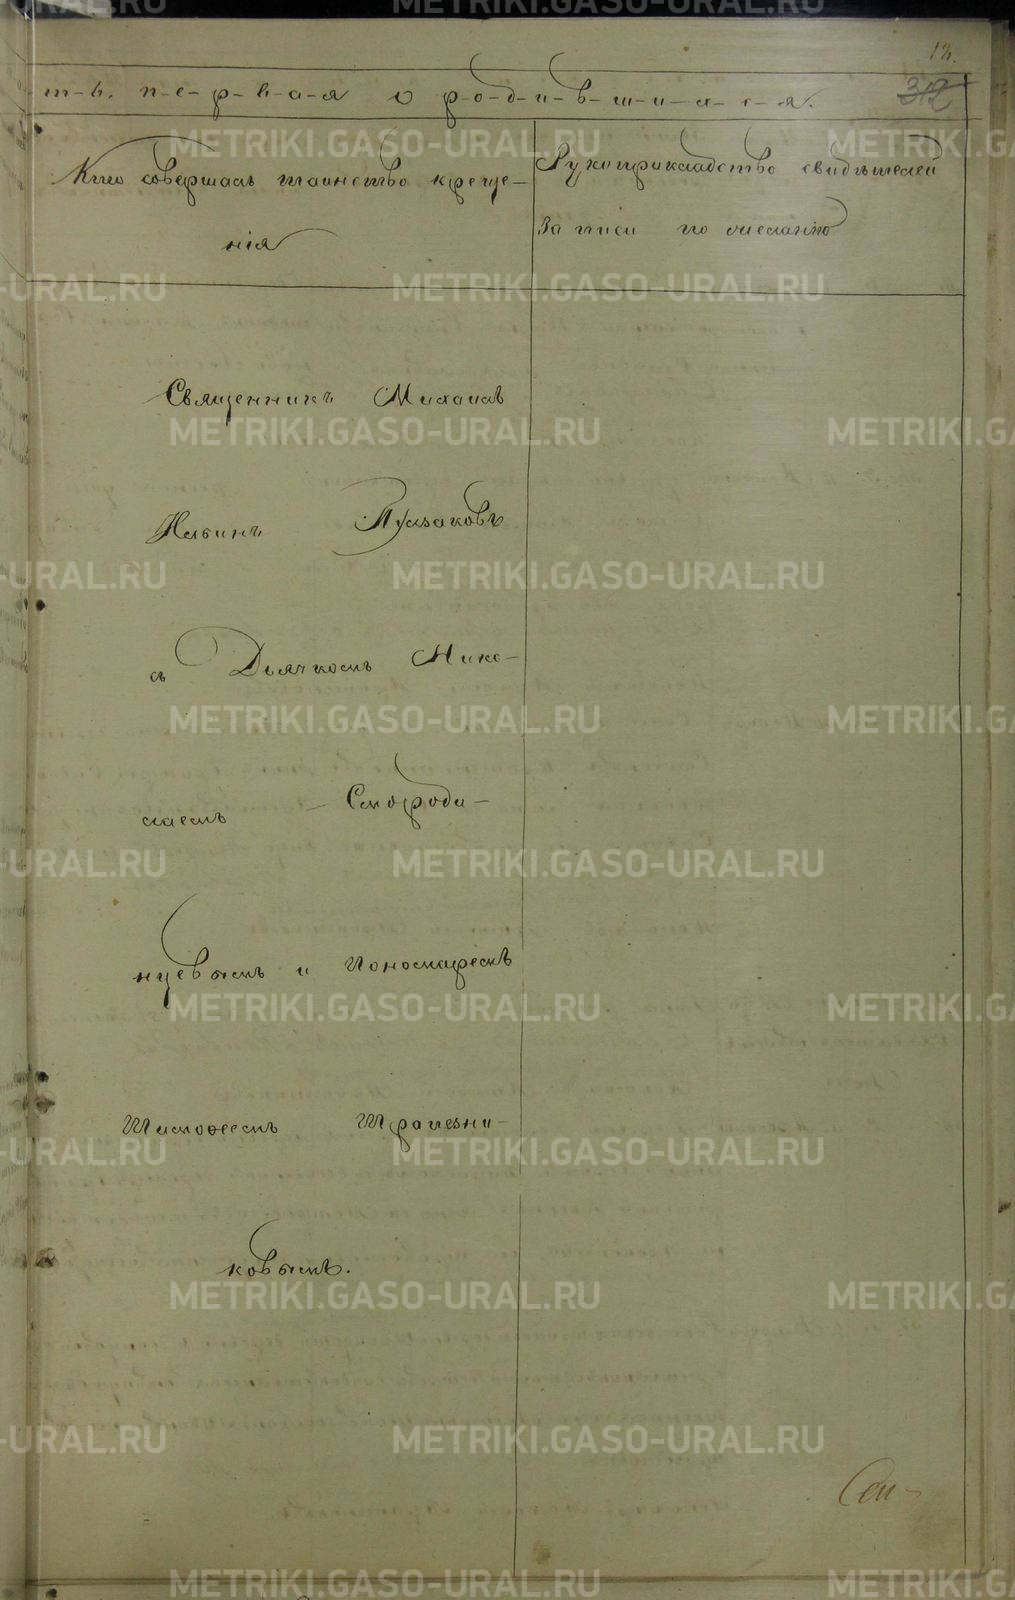 12.
312
т-ь. п-е-р-в-а-я о р-о-д-и-в-ш-и-х-с-я.
Кто совершалъ таинство креще-
нія
Рукоприкладство свидѣтелей
записи по желанію
Священникъ Михаилъ
Пузаковъ
съ Дьячкомъ Нико-
лаемъ Смороди-
нцевымъ и Пономаремъ
Тимофеемъ Трапезни-
ковымъ.
METRIKI.GASO-URAL.RU